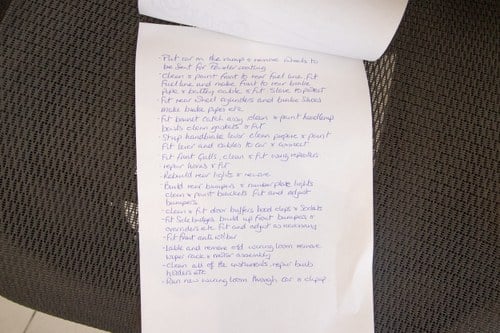 - Put car on the ramp & remove wheels to
be sent for Powder coating
- Clean & paint front to rear fuel line. Fit
fuel line and make front to rear brake
pipe & battery cable & fit sleeve to protect
- Fit rear wheel cylinders and brake shoes
make brake pipes etc
- Fit bonnet catch assy clean & paint headlamp
bowls clean gaskets & fit
- Strip handbrake lever clean prepare & paint
Fit lever and cables to car & connect
- Fit front Grills, clean & fit wing repeaters
- repair horns & fit
- Rebuild rear lights & rewire
- Build rear bumpers & numberplate lights
clean & paint brackets fit and adjust
bumpers
- clean & fit door buffers hood clips & Sockets
- Fit Side badges build up front bumpers &
overriders etc fit and adjust as necessary
- Fit front anti roll bar
- Lable and remove old wiring loom remove
wiper rack & motor assembly
- Clean all of the instruments, repair bulb
holders etc
- Run new wiring loom through car & clip up